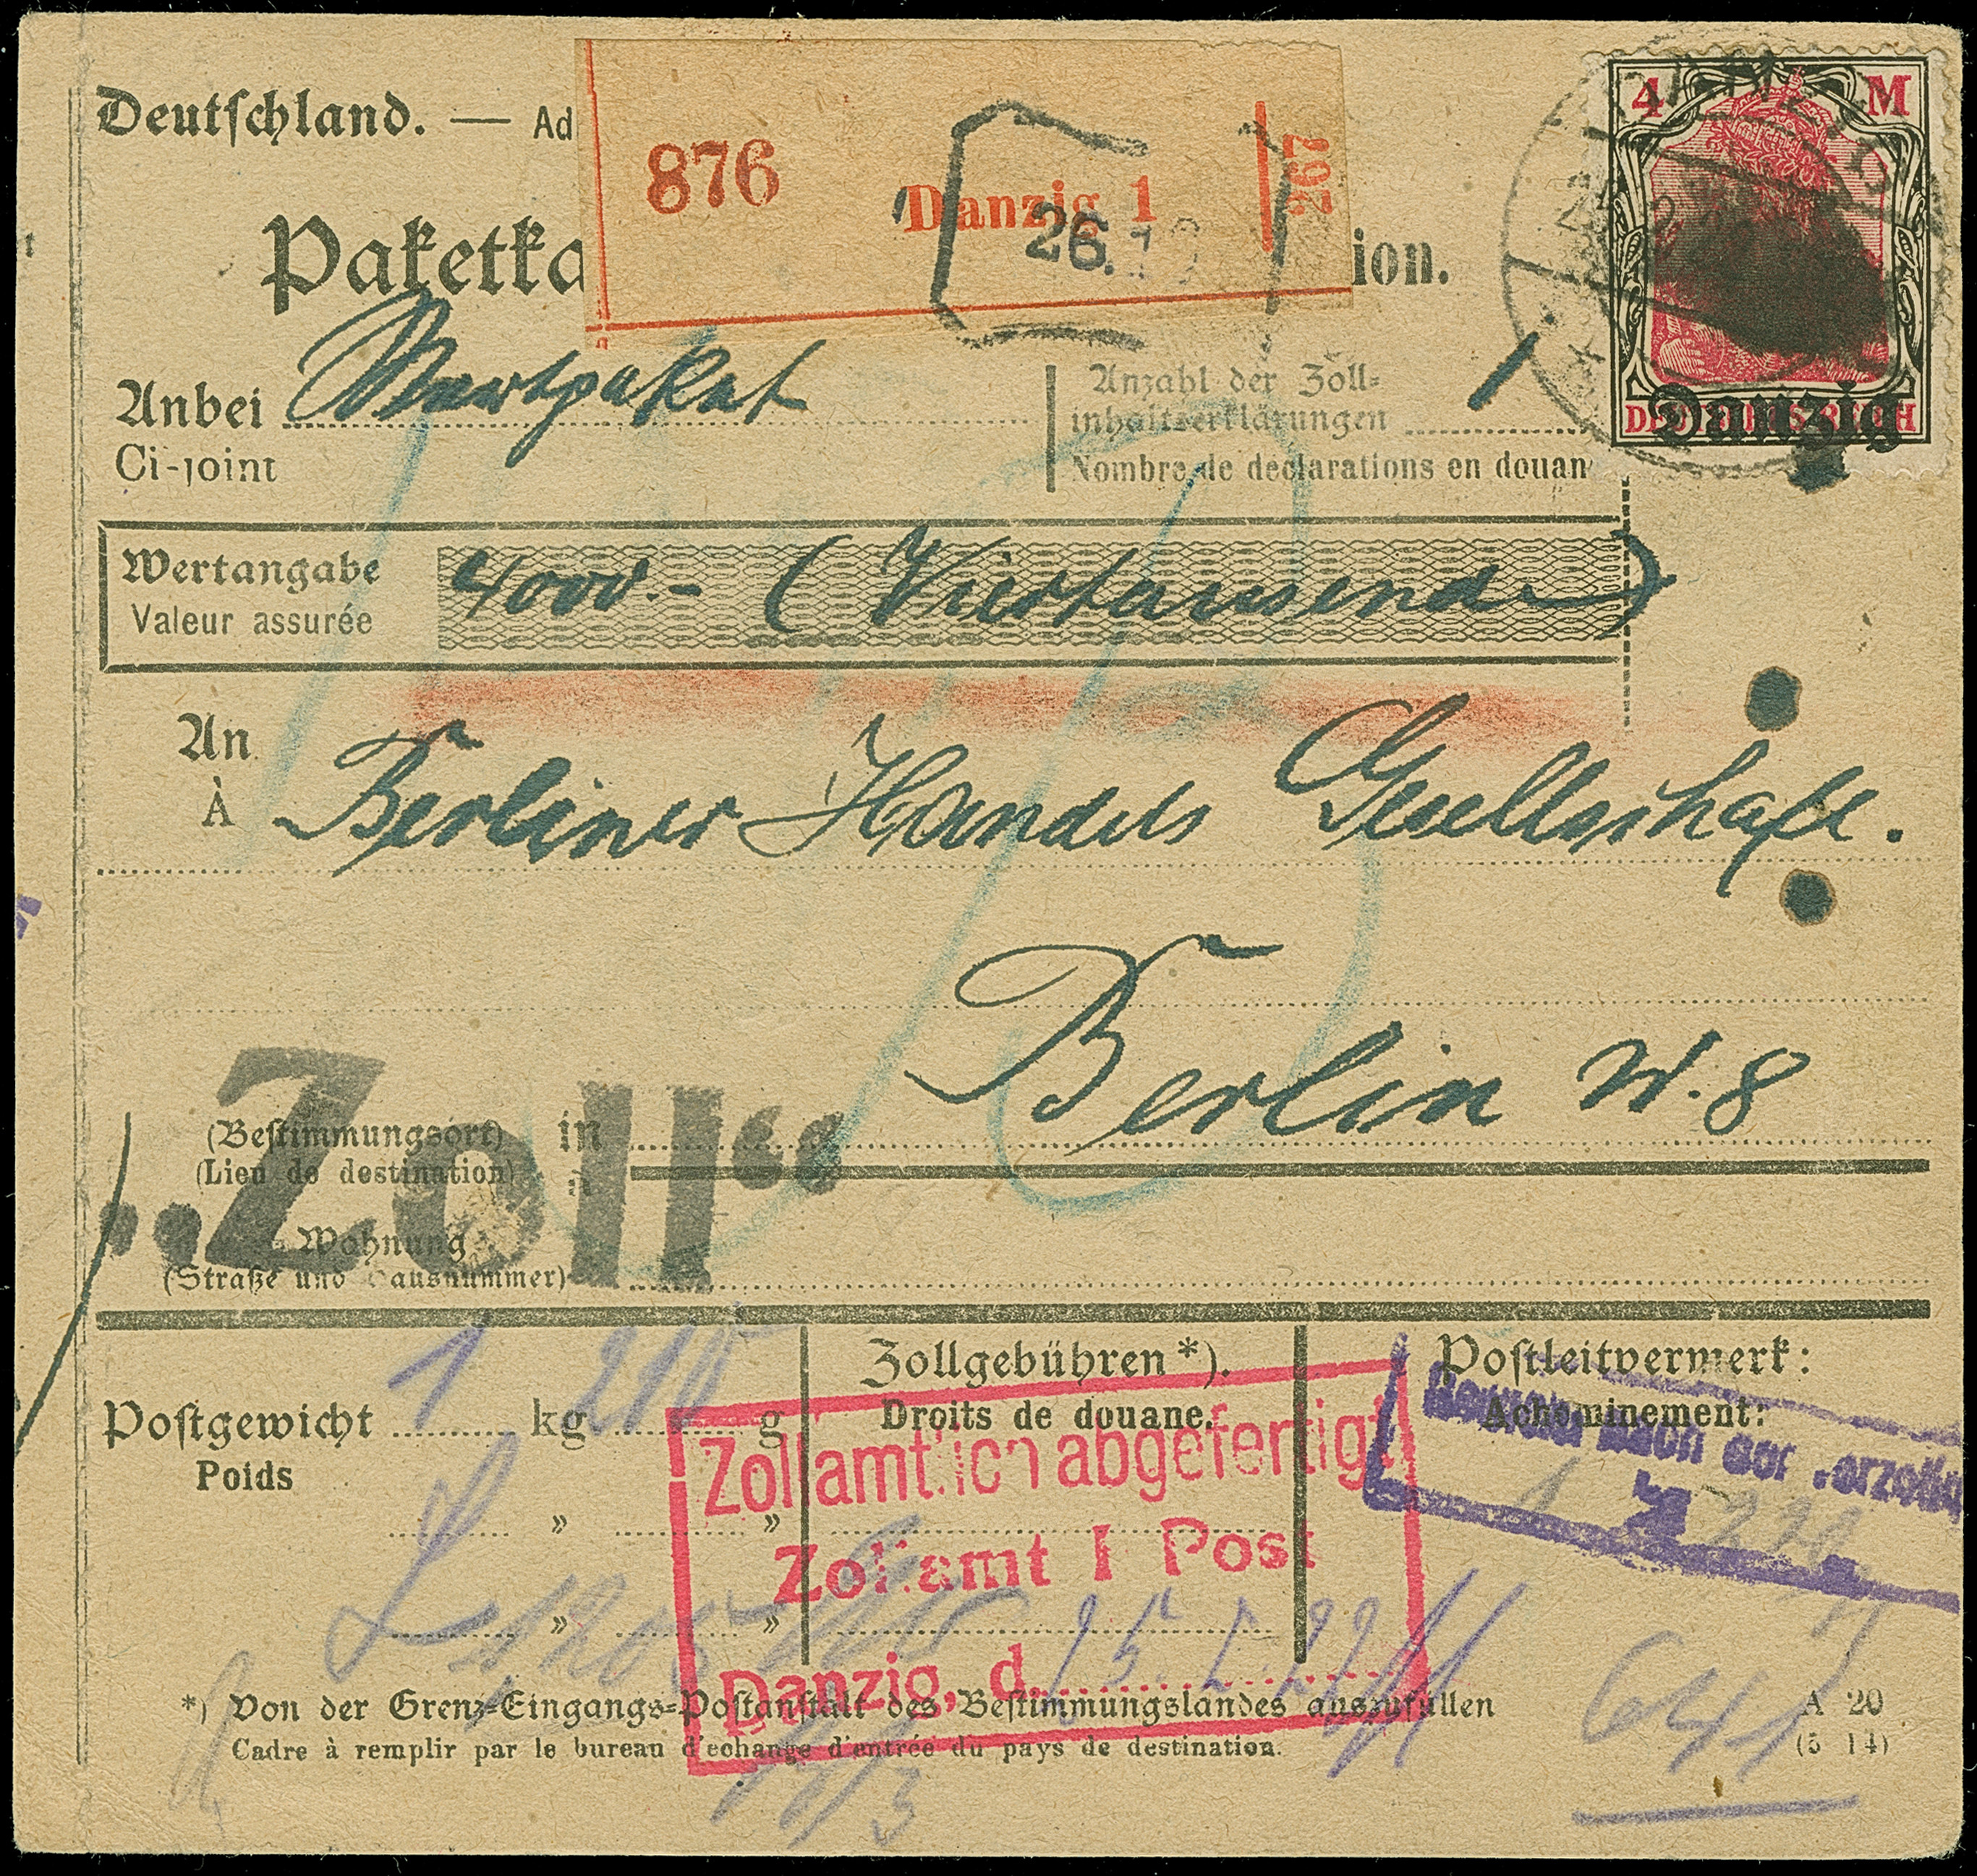 Deutschland. — Ad
876
Danzig 1
267
26.
4 M
DEUTSCHES REICH
Danzig
Paketka
ion.
Anbei Wertpaket
Ci-joint
Anzahl der Zoll-
inhaltserklärungen 1
Nombre de déclarations en douan
Wertangabe 4000.- (Viertausend)
Valeur assurée
An Berliner Handels Gesellschaft.
À
Berlin W. 8
„Zoll“
(Bestimmungsort) in
(Lieu de destination) à
Wohnung
(Straße und Hausnummer)
Postgewicht 1 kg 210 g
Poids
Zollgebühren*).
Droits de douane.
Postleitvermerk:
Acheminement:
Zollamtlich abgefertigt
Zollamt I Post
Danzig, d.
» »
» »
*) Von der Grenz-Eingangs-Postanstalt des Bestimmungslandes auszufüllen
Cadre à remplir par le bureau d'échange d'entrée du pays de destination.
A 20
(5 14)